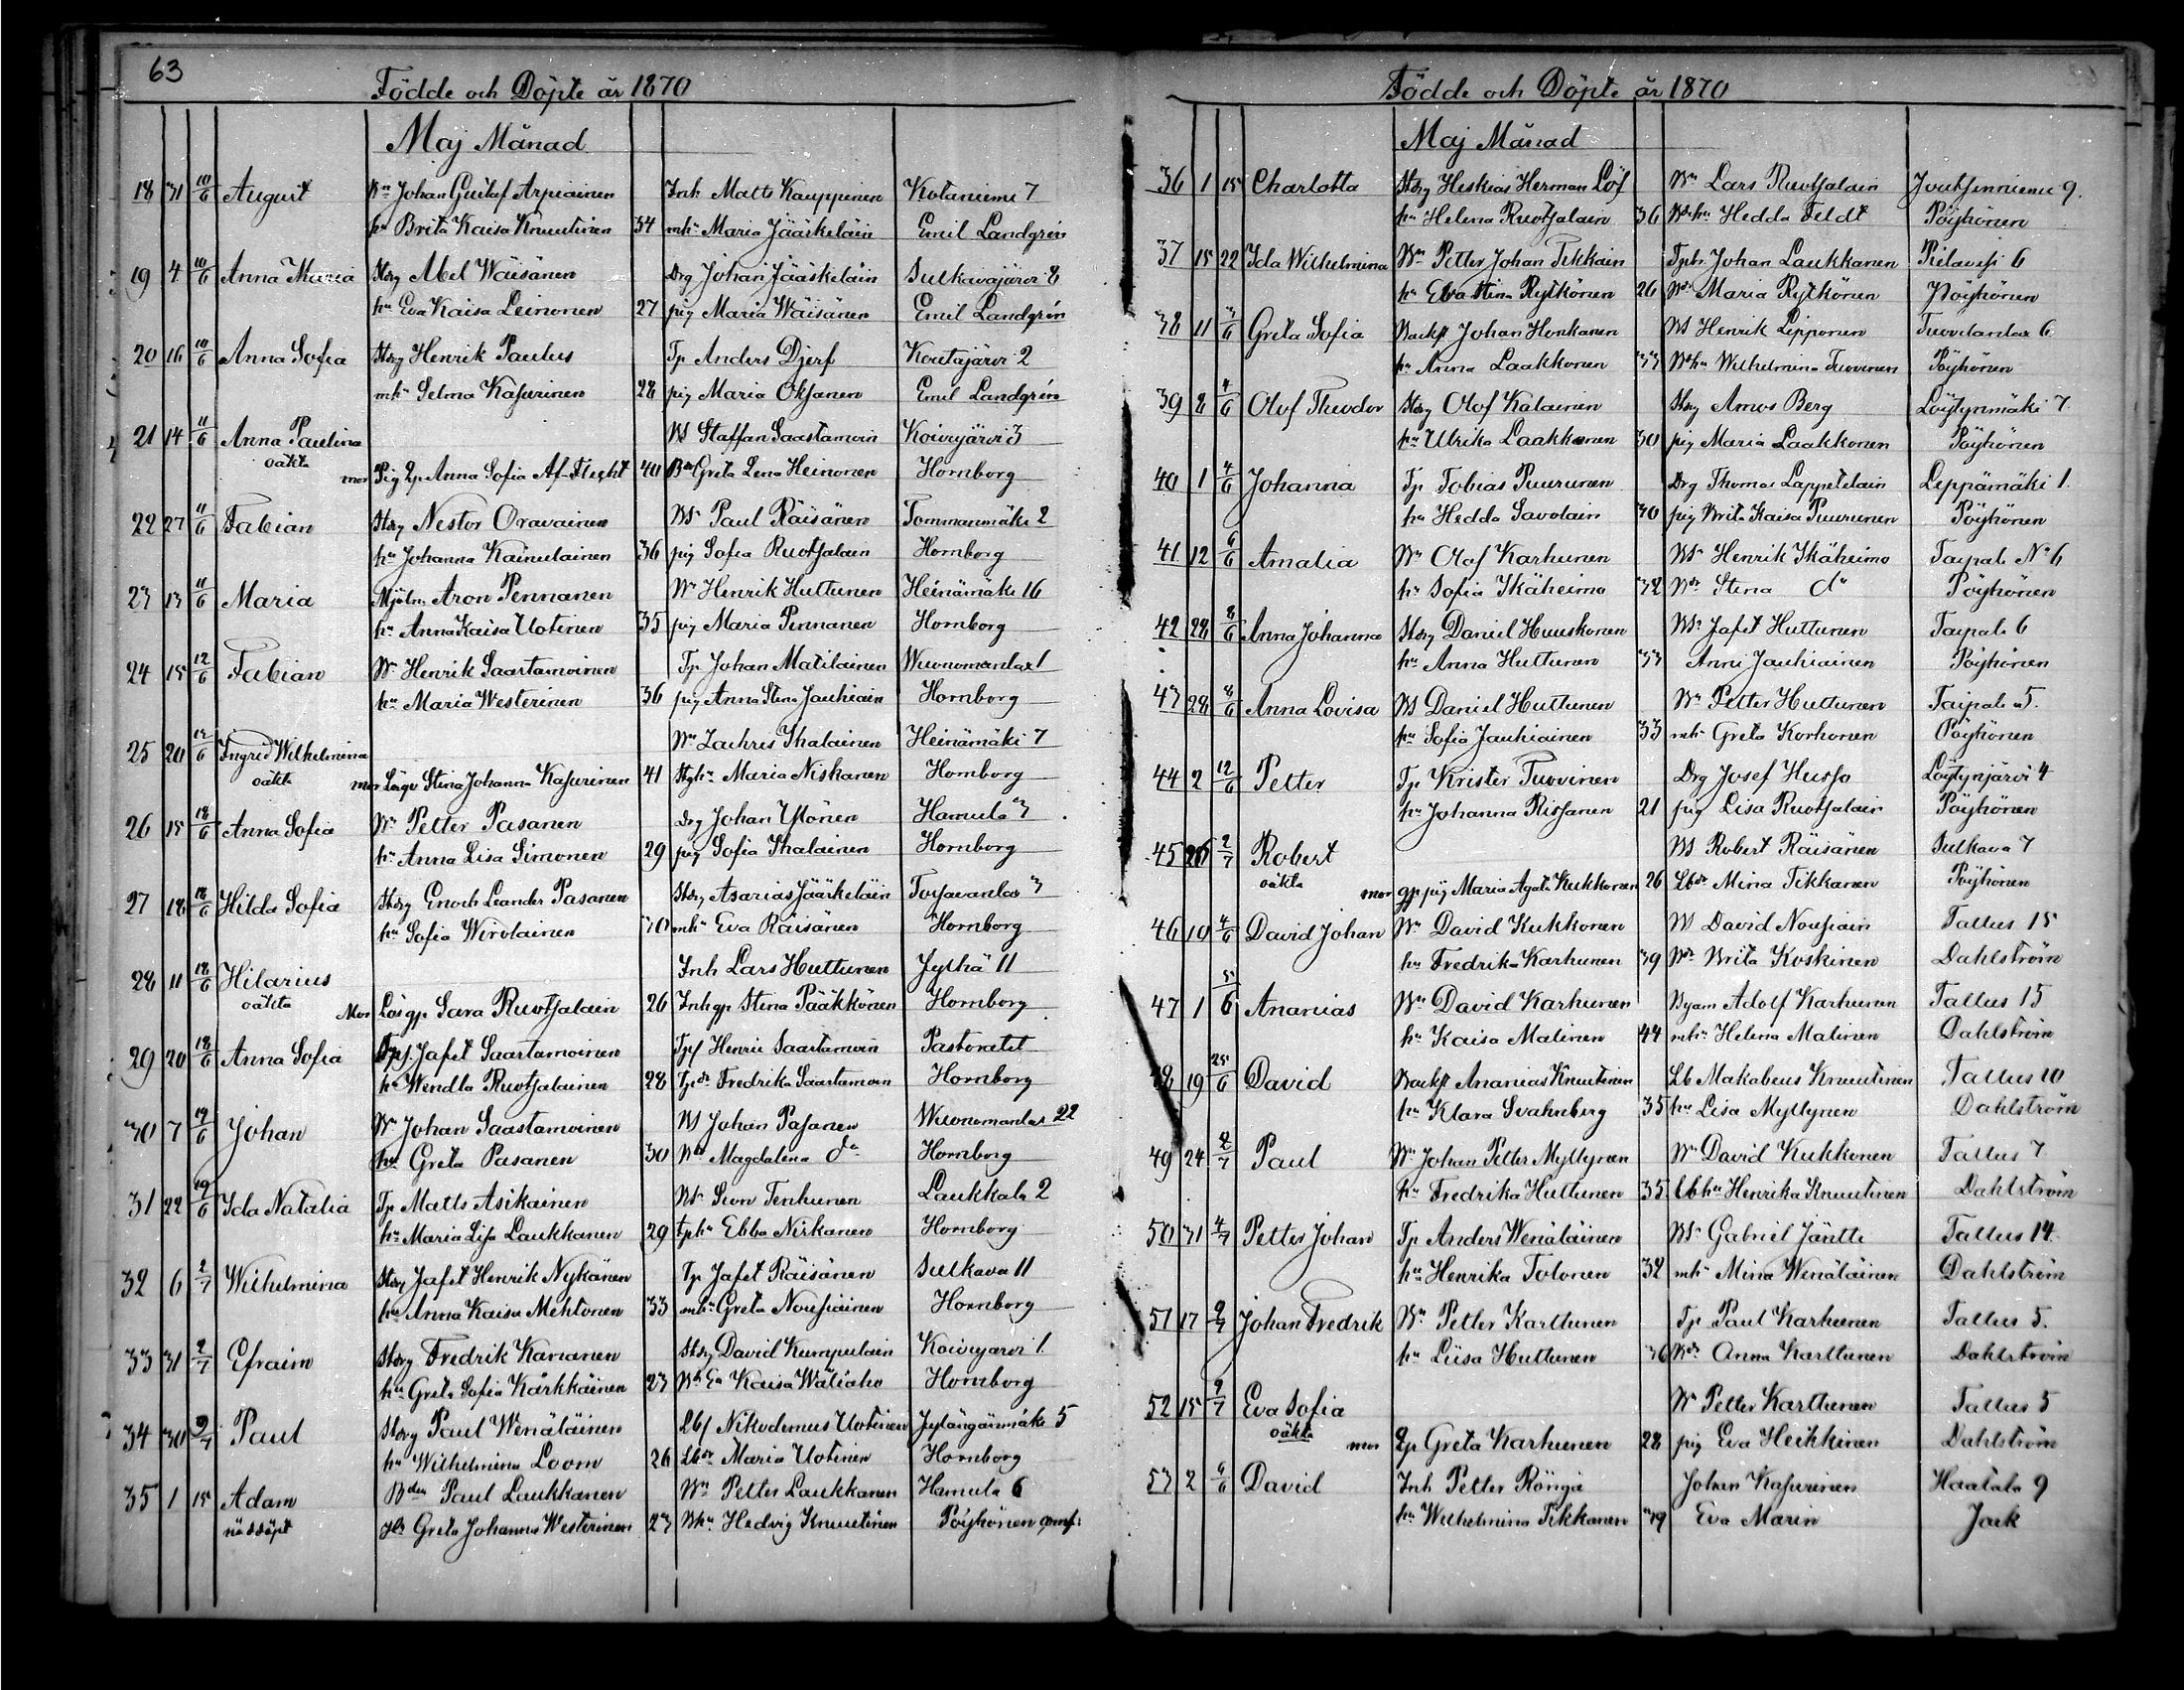 63
Födde och Döpte år 1870
Maj Månad
18 31 10/6 August Bn Johan Gustaf Arpiainen Inh Matts Kauppinen Kotaniemi 7
hu Brita Kaisa Knuutinen 34 mhu Maria Jääskeläin Emil Landgrén
19 4 10/6 Anna Maria Storg Abel Wäisänen Drg Johan Jääskeläin Sulkavajärvi 8
hu Eva Kaisa Leinonen 27 pig Maria Wäisänen Emil Landgrén
20 16 10/6 Anna Sofia Storg Henrik Paulus Tp Anders Djerf Koutajärvi 2
mhu Selma Kasurinen 28 pig Maria Oksanen Emil Landgrén
21 14 11/6 Anna Paulina BS Staffan Saastamoin Koivujärvi 3
oäkta mor Pig Lp Anna Sofia Af-Flecht 40 Bdr Greta Lena Heinonen Hornborg
22 27 11/6 Fabian Storg Nestor Oravainen BS Paul Räisänen Tommanmäki 2
hu Johanna Kainulainen 36 pig Sofia Ruotsalain Hornborg
23 13 11/6 Maria Mjöln Aron Pennanen Bn Henrik Huttunen Heinämäki 16
hu Anna Kaisa Uotinen 35 pig Maria Pennanen Hornborg
24 15 12/6 Fabian Bn Henrik Saastamoinen Tp Johan Matilainen Wuonomanlax 1
hu Maria Westerinen 36 pig Anna Stina Jauhiain Hornborg
25 20 12/6 Ingrid Wilhelmina Bn Zachris Ihalainen Heinämäki 7
oäkta mor Stina Johanna Kasurinen 41 Maria Niskanen Hornborg
26 15 18/6 Anna Sofia Bn Petter Pasanen Drg Johan Ylönen Hamula 3
hu Anna Lisa Simonen 29 pig Sofia Ihalainen Hornborg
27 18 18/6 Hilda Sofia Storg Enoch Leander Pasanen Storg Asarias Jääskeläin 3
hu Sofia Wirolainen 30 mhu Eva Räisänen Hornborg
28 11 18/6 Hilarius Inh Lars Huttunen Jylhä 11
oäkta Mor Lösgp Sara Ruotsalain 26 Inhgp Stina Pääkkönen Hornborg
29 20 18/6 Anna Sofia Tps Jafet Saastamoinen Tps Henric Saastamoin Pastoratet
hu Wendla Ruotsalainen 28 Tpdr Fredrika Saastamoin Hornborg
30 7 19/6 Johan Bn Johan Saastamoinen BS Johan Pasanen Wuonomanlax 22
hu Greta Pasanen 30 Bdr Magdalena do Hornborg
31 22 19/6 Ida Natalia Tp Matts Asikainen BS Sven Tenhunen Laukkala 2
hu Maria Lisa Laukkanen 29 tphu Ebba Niskanen Hornborg
32 6 2/7 Wilhelmina Storg Jafet Henrik Nykänen Tp Jafet Räisänen Sulkava 11
hu Anna Kaisa Mehtonen 33 mhu Greta Nousiainen Hornborg
33 31 2/7 Efraim Storg Fredrik Kananen Storg David Kumpulain Koivujarvi 1
hu Greta Sofia Kärkkäinen 23 Kaisa Wäliaho Hornborg
34 30 9/7 Paul Storg Paul Wenäläinen Lbs Nikodemus Uotinen Jylängänmäki 5
hu Wilhelmina Loom 26 Lbdr Maria Uotinen Hornborg
35 1 15 Adam Bn Paul Laukkanen Bn Petter Laukkanen Hamula 6
nöddöpt hu Greta Johanna Westerinen 23 Bhu Hedvig Knuutinen Pöyhönen
Födde och Döpte år 1870
Maj Månad
36 1 15 Charlotta Storg Heskias Herman Löf Bn Lars Ruotsalain 9
hu Helena Ruotsalain 36 Bdr hu Hedda Feldt Pöyhönen
37 15 22 Ida Wilhelmina Bn Petter Johan Tikkain Tpdr Johan Laukkanen Pielavesi 6
hu Eva Stina Rytkönen 26 Bdr Maria Rytkönen Pöyhönen
38 11 3/6 Greta Sofia Backst Johan Honkanen BS Henrik Lipponen Tuovilanlax 6
hu Anna Laakkonen 33 Bhu Wilhelmina Tuovinen Pöyhönen
39 8 4/6 Olof Theodor Storg Olof Kalainen Storg Amos Berg Löytynmäki 7
hu Ulrika Laakkonen 30 pig Maria Laakkonen Pöyhönen
40 1 4/6 Johanna Tp Tobias Puurunen Drg Thomas Lappetelain Leppämäki 1
hu Hedda Savolain 30 pig Brita Kaisa Puurunen Pöyhönen
41 12 6/6 Amalia Bn Olof Karhunen BS Henrik Ikäheimo Taipale No 6
hu Sofia Ikäheimo 32 Bdr Stina do Pöyhönen
42 28 8/6 Anna Johanna Storg Daniel Huuskonen BS Jafet Huttunen Taipale 6
hu Anna Huttunen 33 Anni Jauhiainen Pöyhönen
43 28 8/6 Anna Lovisa BS Daniel Huttunen Bn Petter Huttunen Taipale 5.
hu Sofia Jauhiainen 33 mhu Greta Korhonen Pöyhönen
44 2 12/6 Petter Tp Krister Tuovinen Drg Josef Husso Löytynjärvi 4
hu Johanna Rissanen 21 pig Lisa Ruotsalain Pöyhönen
45 26 2/7 Robert BS Robert Räisänen Sulkava 7
oäkta mor gp pig Maria Agata Kukkonen 26 Lbdr Mina Tikkanen Pöyhönen
46 10 4/6 David Johan Bn David Kukkonen BS David Nousiain Tallus 15
hu Fredrika Karhunen 39 Bdr Brita Koskinen Dahlström
47 1 5/6 Ananias Bn David Karhunen Byam Adolf Karhunen Tallus 15
hu Kaisa Malinen 44 mhu Helena Malinen Dahlström
48 19 25/6 David Backst Ananias Knuutinen Lb Makabeus Knuutinen Tallus 10
hu Klara Svahnberg 35 hu Lisa Myllynen Dahlström
49 24 2/7 Paul Bn Johan Petter Myllynen Bn David Kukkonen Tallus 7
hu Fredrika Huttunen 35 Lbhu Henrika Knuutinen Dahlström
50 31 4/7 Petter Johan Tp Anders Wenäläinen BS Gabriel Jäntti Tallus 14
hu Henrika Tolonen 32 mhu Mina Wenäläinen Dahlström
51 17 9/7 Johan Fredrik Bn Petter Karttunen Tp Paul Karhunen Tallus 5.
hu Liisa Huttunen 36 Bdr Anna Karttunen Dahlström
52 15 9/7 Eva Sofia Bn Petter Karttunen Tallus 5
oäkta mor Lp Greta Karhunen 28 pig Eva Heikkinen Dahlström
53 2 6/6 David Inh Petter Rönqä Johan Kasurinen Haatala 9
hu Wilhelmina Tikkanen 39 Eva Marin Jack